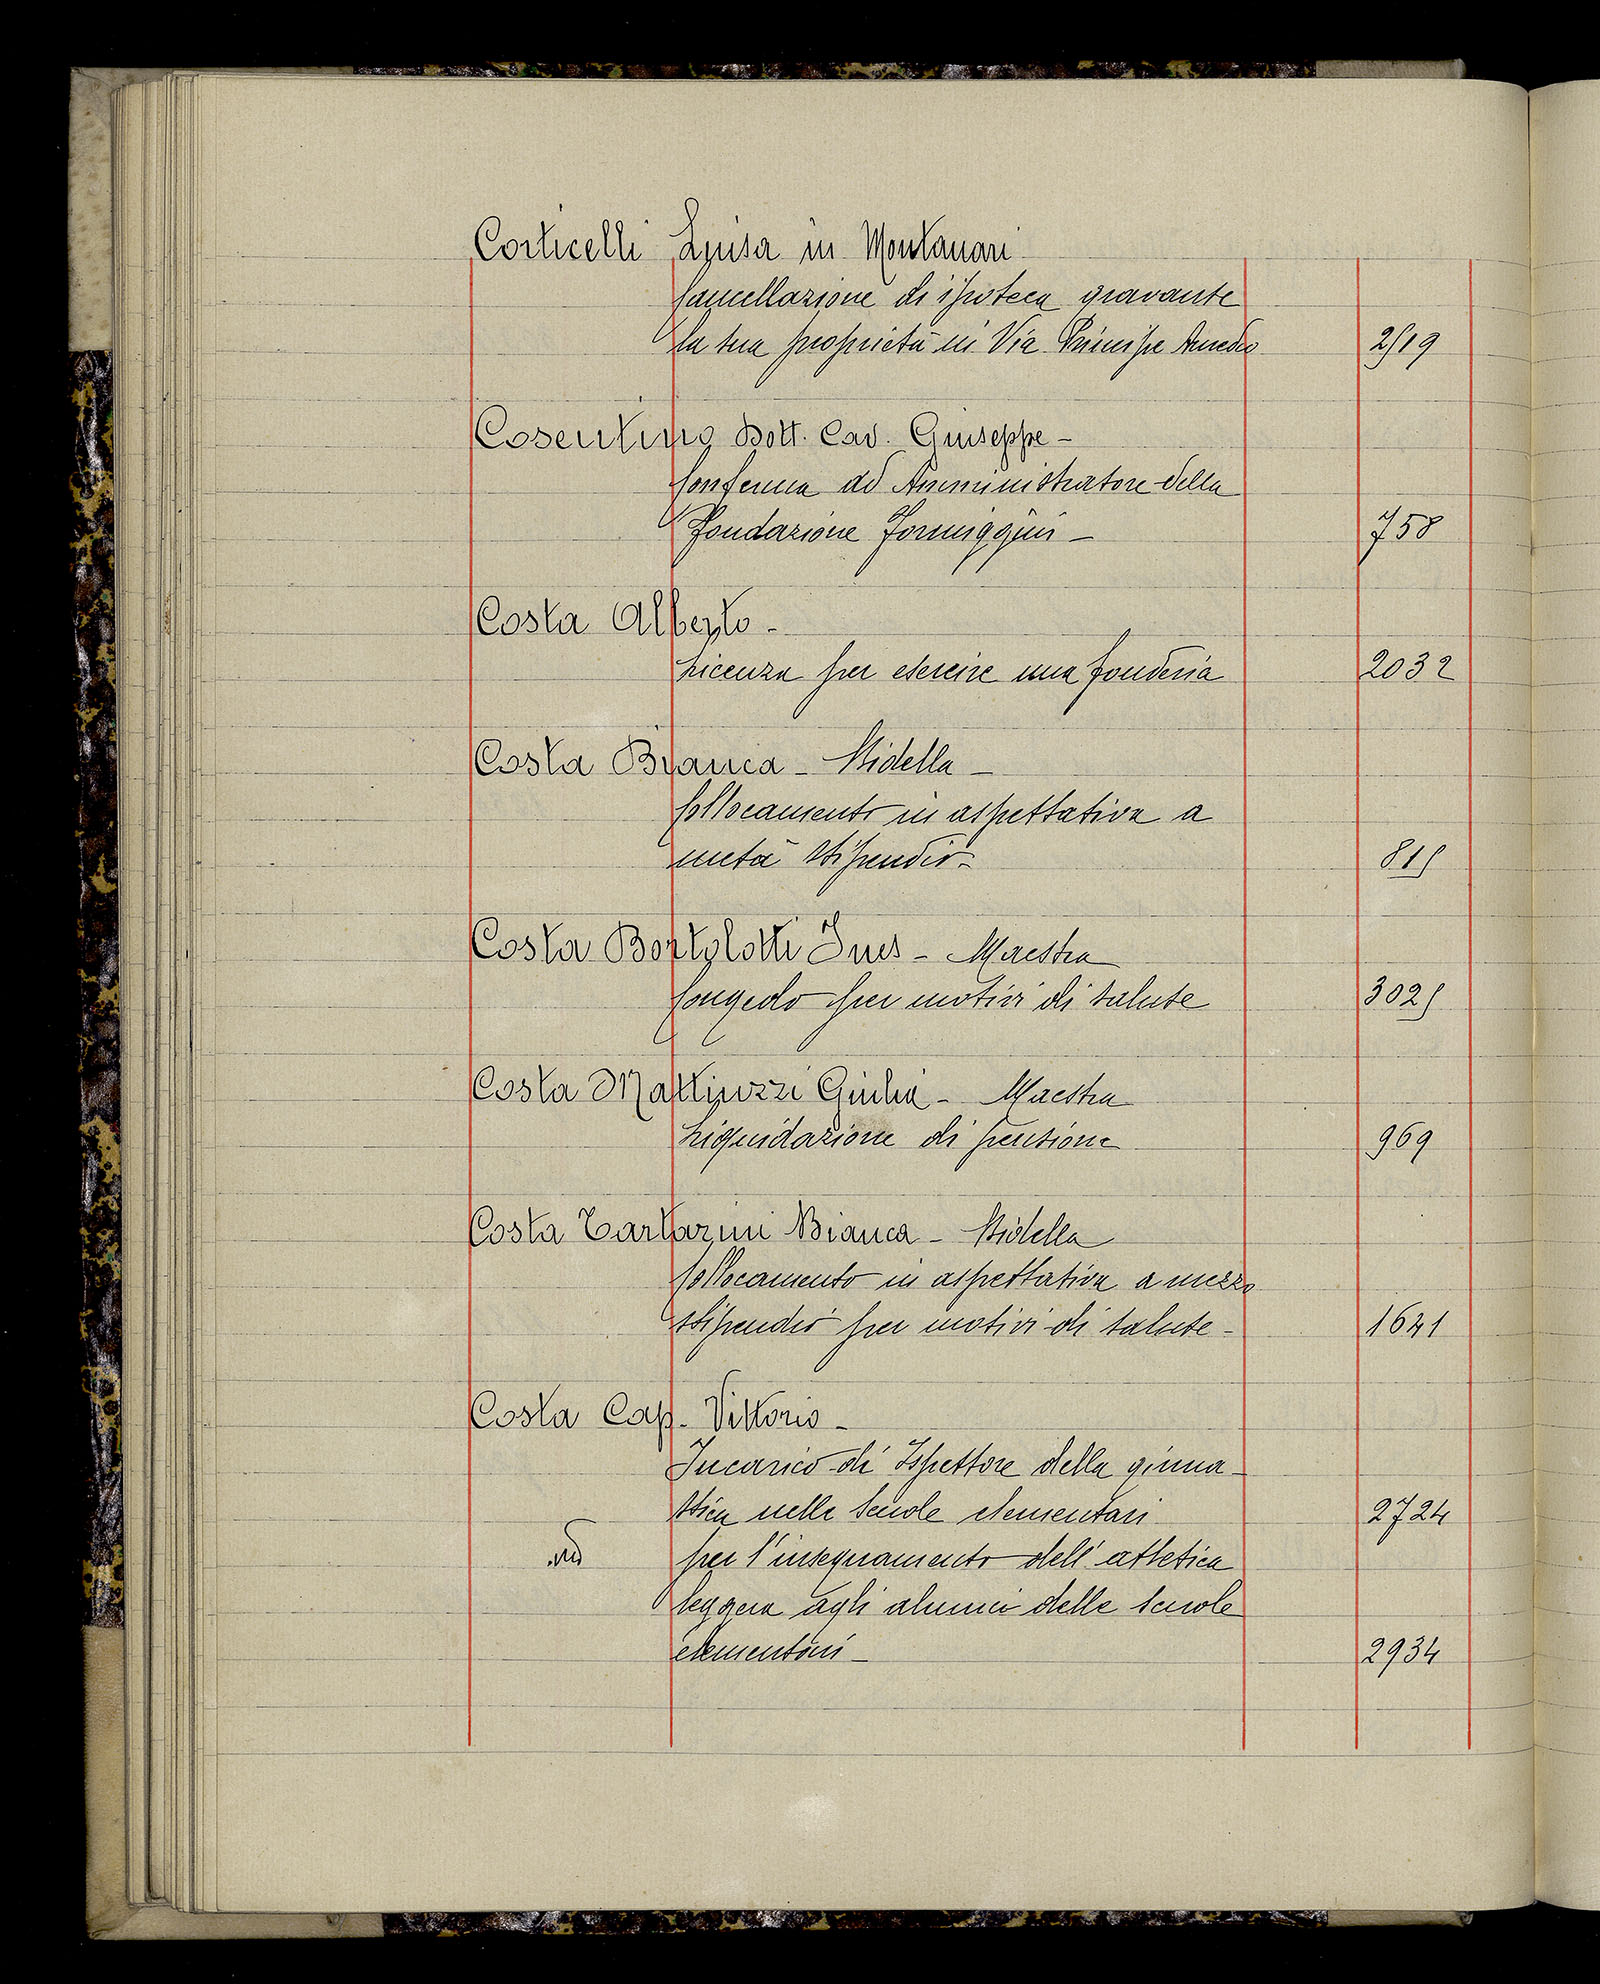 Corticelli Luisa in Montanari
Cancellazione di ipoteca gravante
la sua proprietà in Via Principe Amedeo 2519
Cosentino Dott. Cav. Giuseppe -
Conferma ad Amministratore della
Fondazione Formiggini - 758
Costa Alberto -
Licenza per esercire una fonderia 2032
Costa Bianca - Bidella -
Collocamento in aspettativa a
metà stipendio - 815
Costa Bortolotti Ines - Maestra
Congedo per motivi di salute 3025
Costa Mattiuzzi Giulia - Maestra
Liquidazione di pensione 969
Costa Tartarini Bianca - Bidella
Collocamento in aspettativa a mezzo
stipendio per motivi di salute - 1641
Costa Cap. Vittorio -
Incarico di Ispettore della ginna-
stica nelle scuole elementari 2724
per l'insegnamento dell'atletica
leggera agli alunni delle scuole
elementari - 2934